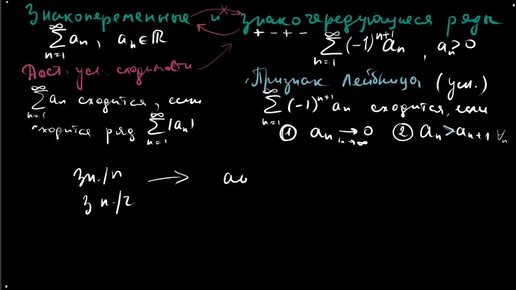 Знакопеременные и знакочередующиеся ряды
∞∑n=1 aₙ, aₙ∈ℝ
+ - + -
∞∑n=1 (-1)ⁿ⁺¹aₙ, aₙ>0
Дост. усл. сходимости
∞∑n=1 aₙ сходится, если
сходится ряд ∞∑n=1 |aₙ|
Признак Лейбница (усл.)
∞∑n=1 (-1)ⁿ⁺¹aₙ сходится, если
① aₙ → 0 n→∞ ② aₙ > aₙ₊₁ ∀n
зн./п → аб
зн./ч